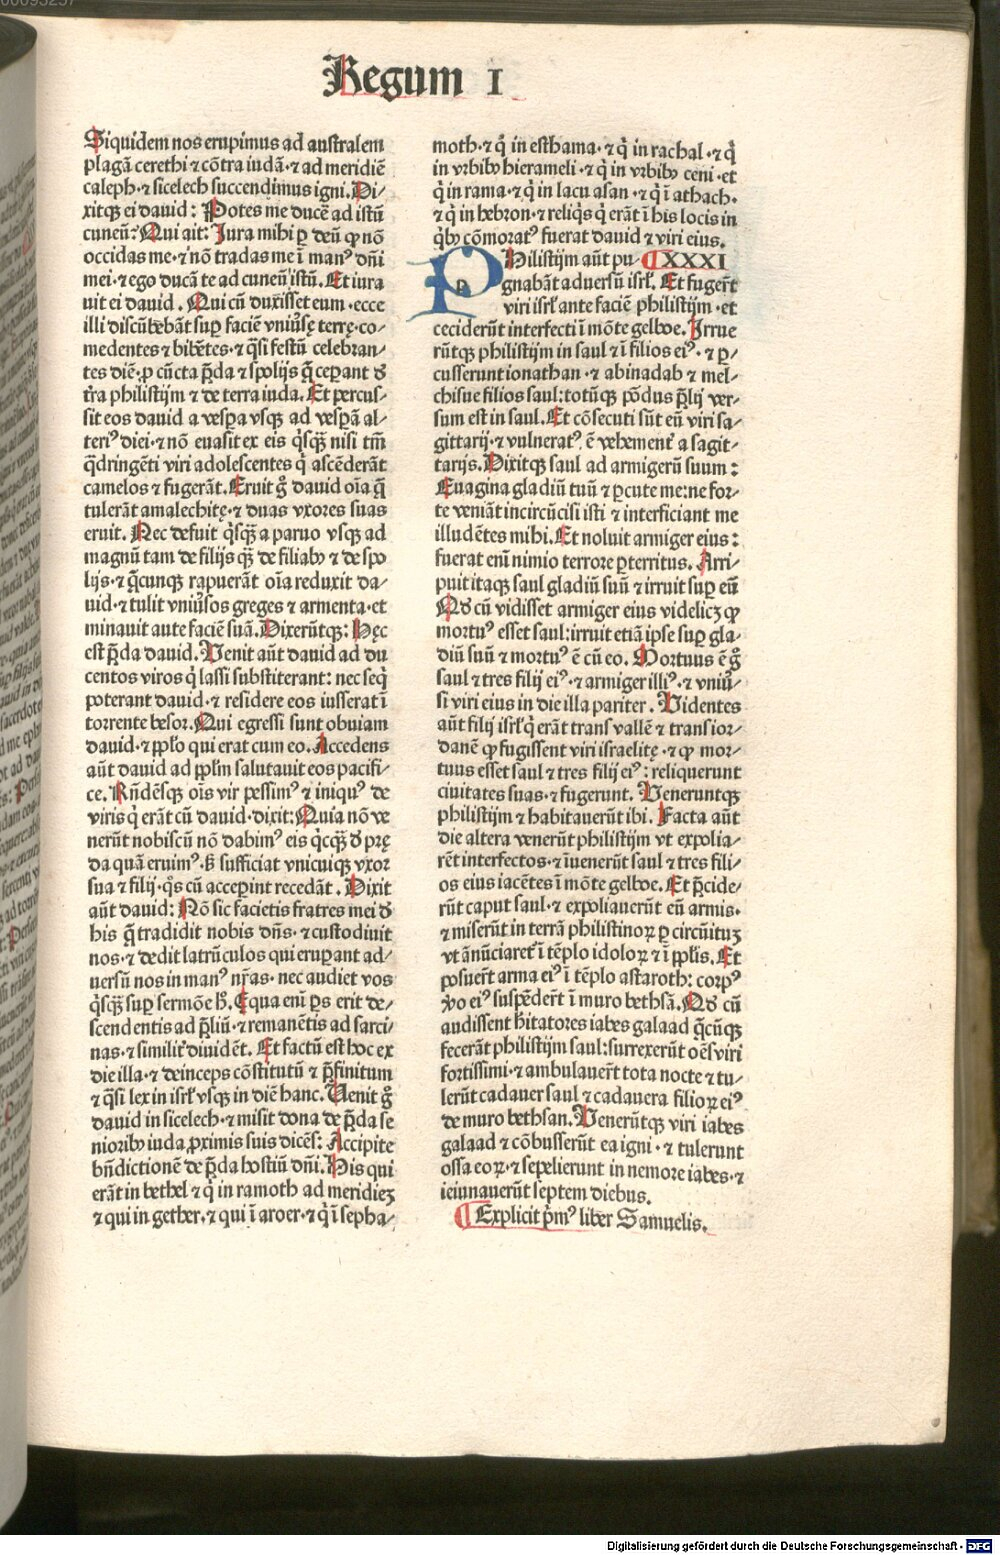 Regum I
Siquidem nos erupimus ad australem
plagā cerethi ⁊ cōtra iudā· ⁊ ad meridiē
caleph· ⁊ sicelech succendimus igni. Di/
xitqꝫ ei dauid: Potes me ducē ad istū
cuneū? Qui ait: Iura mihi ꝑ deū ꝙ nō
occidas me· ⁊ nō tradas me ī manꝰ dn̄i
mei· ⁊ ego ducā te ad cuneū istū. Et iura
uit ei dauid. Qui cū duxisset eum· ecce
illi discūbebāt suꝑ faciē vniūse terrę· co/
medentes ⁊ bibētes· ⁊ q̄si festū celebran/
tes diē· ꝓ cūcta p̄da ⁊ spolijs q̄ ceꝑant d̕
tr̄a philistijm ⁊ de terra iuda. Et percus/
sit eos dauid a vespa vsqꝫ ad vespā al/
teriꝰ diei· ⁊ nō euasit ex eis q̄sq̄ꝫ nisi tm̄
q̄dringēti viri adolescentes q̇ ascēderāt
camelos ⁊ fugerāt. Eruit gͦ dauid oīa q̄
tulerāt amalechitę· ⁊ duas vxores suas
eruit. Nec defuit q̇sq̄ꝫ a paruo vsqꝫ ad
magnū tam de filijs q̄ꝫ de filiabꝰ ⁊ de spo
lijs· ⁊ q̄cunqꝫ rapuerāt oīa reduxit da/
uid· ⁊ tulit vniūsos greges ⁊ armenta· et
minauit ante faciē suā. Dixerūtqꝫ: Hęc
est p̄da dauid. Venit aūt dauid ad du
centos viros q̇ lassi substiterant: nec seq̇
poterant dauid· ⁊ residere eos iusserat ī
torrente besor. Qui egressi sunt obuiam
dauid· ⁊ pplo qui erat cum eo. Accedens
aūt dauid ad pplm salutauit eos pacifi/
ce. Rn̄dēsqꝫ oīs vir pessimꝰ ⁊ iniquꝰ de
viris q̇ erāt cū dauid· dixit: Quia nō ve
nerūt nobiscū nō dabimꝰ eis q̇cq̄ꝫ d̕ prę
da quā eruimꝰ. sꝫ sufficiat vnicuiqꝫ vxor
sua ⁊ filij· q̇s cū acceperint recedāt. Dixit
aūt dauid: Nō sic facietis fratres mei d̕
his q̄ tradidit nobis dn̄s· ⁊ custodiuit
nos· ⁊ dedit latrūculos qui eruperant ad/
uersū nos in manꝰ nr̄as· nec audiet vos
q̇sq̄ꝫ suꝑ sermōe hͦ. Equa enī ꝑs erit de/
scendentis ad p̄liū· ⁊ remanētis ad sarci/
nas· ⁊ similit̄ diuidēt. Et factū est hoc ex
die illa· ⁊ deinceps cōstitutū ⁊ p̄finitum
⁊ q̄si lex in isrl̄ vsqꝫ in diē hanc. Uenit gͦ
dauid in sicelech· ⁊ misit dona de p̄da se
nioribꝰ iuda ꝓximis suis dicēs: Accipite
bn̄dictionē de p̄da hostiū dn̄i. His qui
erāt in bethel ⁊ q̇ in ramoth ad meridieꝫ
⁊ qui in gether· ⁊ qui ī aroer· ⁊ q̇ ī sepha/
moth· ⁊ q̇ in esthama· ⁊ q̇ in rachal· ⁊ q̇
in vrbibꝰ hierameli· ⁊ q̇ in vrbibꝰ ceni· et
q̇ in rama· ⁊ q̇ in lacu asan· ⁊ q̇ ī athach·
⁊ q̇ in hebron· ⁊ reliq̇s q̇ erāt ī his locis in
q̇bꝰ cōmoratꝰ fuerat dauid ⁊ viri eius.
Philistijm aūt pu/ ¶XXXI
gnabāt aduersū isrl̄. Et fugerūt
viri isrl̄ ante faciē philistijm· et
ceciderūt interfecti ī mōte gelboe. Irrue
rūtqꝫ philistijm in saul ⁊ ī filios eiꝰ· ⁊ ꝑ/
cusserunt ionathan· ⁊ abinadab ⁊ mel/
chisue filios saul: totūqꝫ pōdus p̄lij ver/
sum est in saul. Et cōsecuti sūt eū viri sa/
gittarij· ⁊ vulneratꝰ ē vehement̄ a sagit/
tarijs. Dixitqꝫ saul ad armigerū suum:
Euagina gladiū tuū ⁊ ꝑcute me: ne for/
te veniāt incircūcisi isti ⁊ interficiant me
illudētes mihi. Et noluit armiger eius:
fuerat enī nimio terrore ꝑterritus. Arri/
puit itaqꝫ saul gladiū suū ⁊ irruit suꝑ eū
Qd̕ cū vidisset armiger eius videlicꝫ ꝙ
mortuꝰ esset saul: irruit etiā ipse suꝑ gla/
diū suū ⁊ mortuꝰ ē cū eo. Mortuus ē gͦ
saul ⁊ tres filij eiꝰ· ⁊ armiger illiꝰ· ⁊ vniū/
si viri eius in die illa pariter. Videntes
aūt filij isrl̄ q̇ erāt trans vallē ⁊ trans ior/
danē ꝙ fugissent viri israelitę· ⁊ ꝙ mor/
tuus esset saul ⁊ tres filij eiꝰ: reliquerunt
ciuitates suas· ⁊ fugerunt. Veneruntqꝫ
philistijm ⁊ habitauerūt ibi. Facta aūt
die altera venerūt philistijm vt expolia/
rēt interfectos· ⁊ īuenerūt saul ⁊ tres fili/
os eius iacētes ī mōte gelboe. Et p̄cide/
rūt caput saul· ⁊ expoliauerūt eū armis.
⁊ miserūt in terrā philistinoꝝ ꝑ circūituꝫ
vt ānūciaret̄ ī tēplo idoloꝝ ⁊ ī pplis. Et
posuerūt arma eiꝰ ī tēplo astaroth: corpꝰ
ꝟo eiꝰ suspēderūt ī muro bethsā. Qd̕ cū
audissent h̄itatores iabes galaad q̄cūqꝫ
fecerāt philistijm saul: surrexerūt oēs viri
fortissimi· ⁊ ambulauerūt tota nocte ⁊ tu/
lerūt cadauer saul ⁊ cadauera filioꝝ eiꝰ
de muro bethsan. Venerūtqꝫ viri iabes
galaad ⁊ cōbusserūt ea igni· ⁊ tulerunt
ossa eoꝝ· ⁊ sepelierunt in nemore iabes· ⁊
ieiunauerūt septem diebus.
¶Explicit p̄mꝰ liber Samuelis.
Digitalisierung gefördert durch die Deutsche Forschungsgemeinschaft - DFG